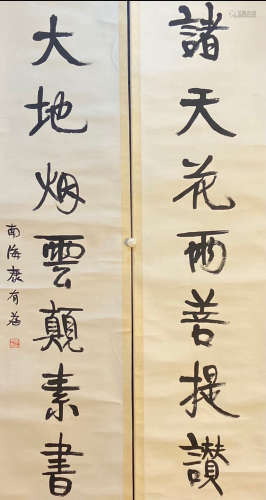 諸天花雨善提讃
大地烟雲顛素書
南海康有為